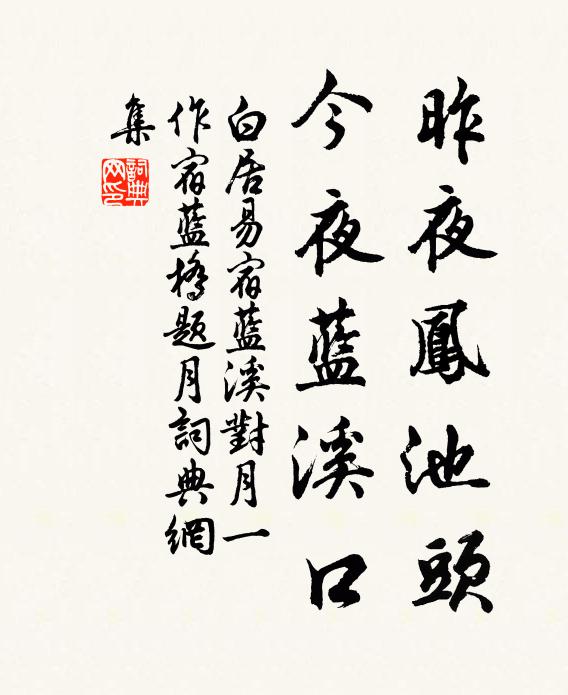 昨夜鳳池頭
今夜藍溪口
白居易宿藍溪對月一
作宿藍橋題月詞典網
集
詞典
网印